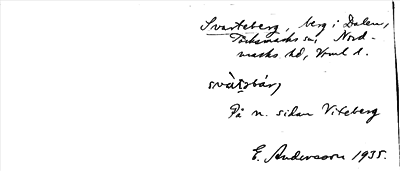 Svarteberg, berg i Dalen,
Töcksmarks sn, Nord-
marks hd, Vrml l.
svàt̯bár,
På n. sidan Viteberg
E. Andersson 1935.